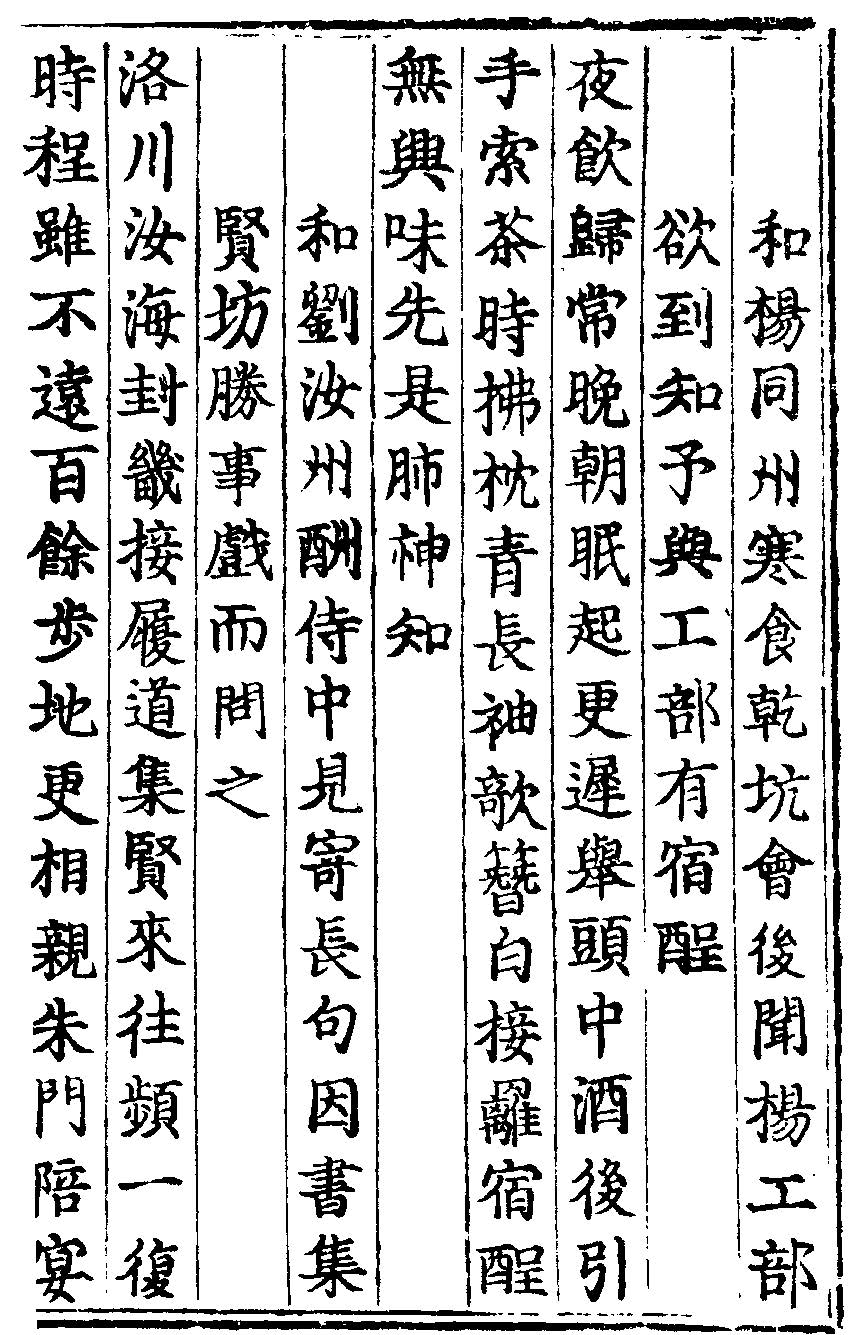 和楊同州寒食乾坑會後聞楊工部
欲到知予與工部有宿酲
夜飲歸常晚朝眠起更遲舉頭中酒後引
手索茶時拂枕青長袖欹簪白接䍦宿酲
無興味先是肺神知
和劉汝州酬侍中見寄長句因書集
賢坊勝事戲而問之
洛川汝海封畿接履道集賢來往頻一復
時程雖不遠百餘步地更相親朱門陪宴